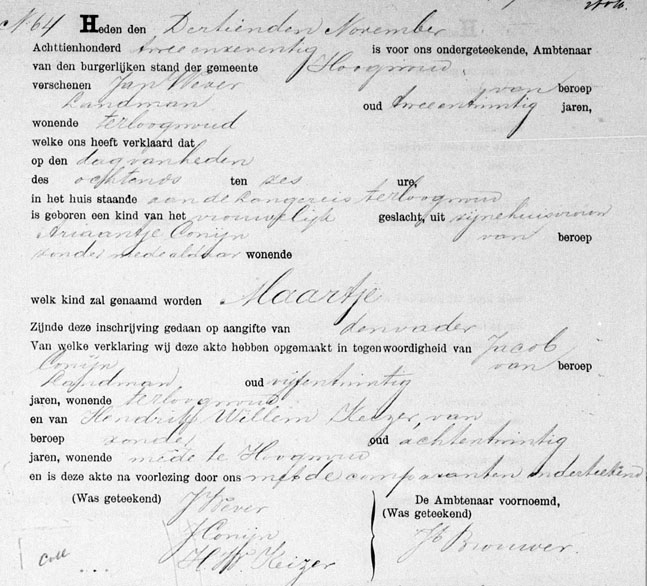 No. 64 Heden den Dertienden November
Achttienhonderd twee en zeventig is voor ons ondergeteekende, Ambtenaar
van den burgerlijken stand der gemeente Hoogwoud
verschenen Jan Wever van beroep
Landman oud twee en twintig jaren,
wonende te Hoogwoud
welke ons heeft verklaard dat
op den dag van heden
des ochtends ten zes ure,
in het huis staande aan de Langereis te Hoogwoud
is geboren een kind van het vrouwelijk geslacht, uit zijne huisvrouw
Ariaantje Conijn van beroep
zonder mede aldaar wonende
welk kind zal genaamd worden Maartje
Zijnde deze inschrijving gedaan op aangifte van den vader
Van welke verklaring wij deze akte hebben opgemaakt in tegenwoordigheid van Jacob
Conijn van beroep
Landman, oud vijfentwintig
jaren, wonende te Hoogwoud
en van Hendrik Willem Keizer, van
beroep zonder oud achtentwintig
jaren, wonende mede te Hoogwoud
en is deze akte na voorlezing door ons met de comparanten onderteekend
(Was geteekend) J Wever De Ambtenaar voornoemd,
J Conijn (Was geteekend)
H W. Keizer Jb Brouwer.
Coll